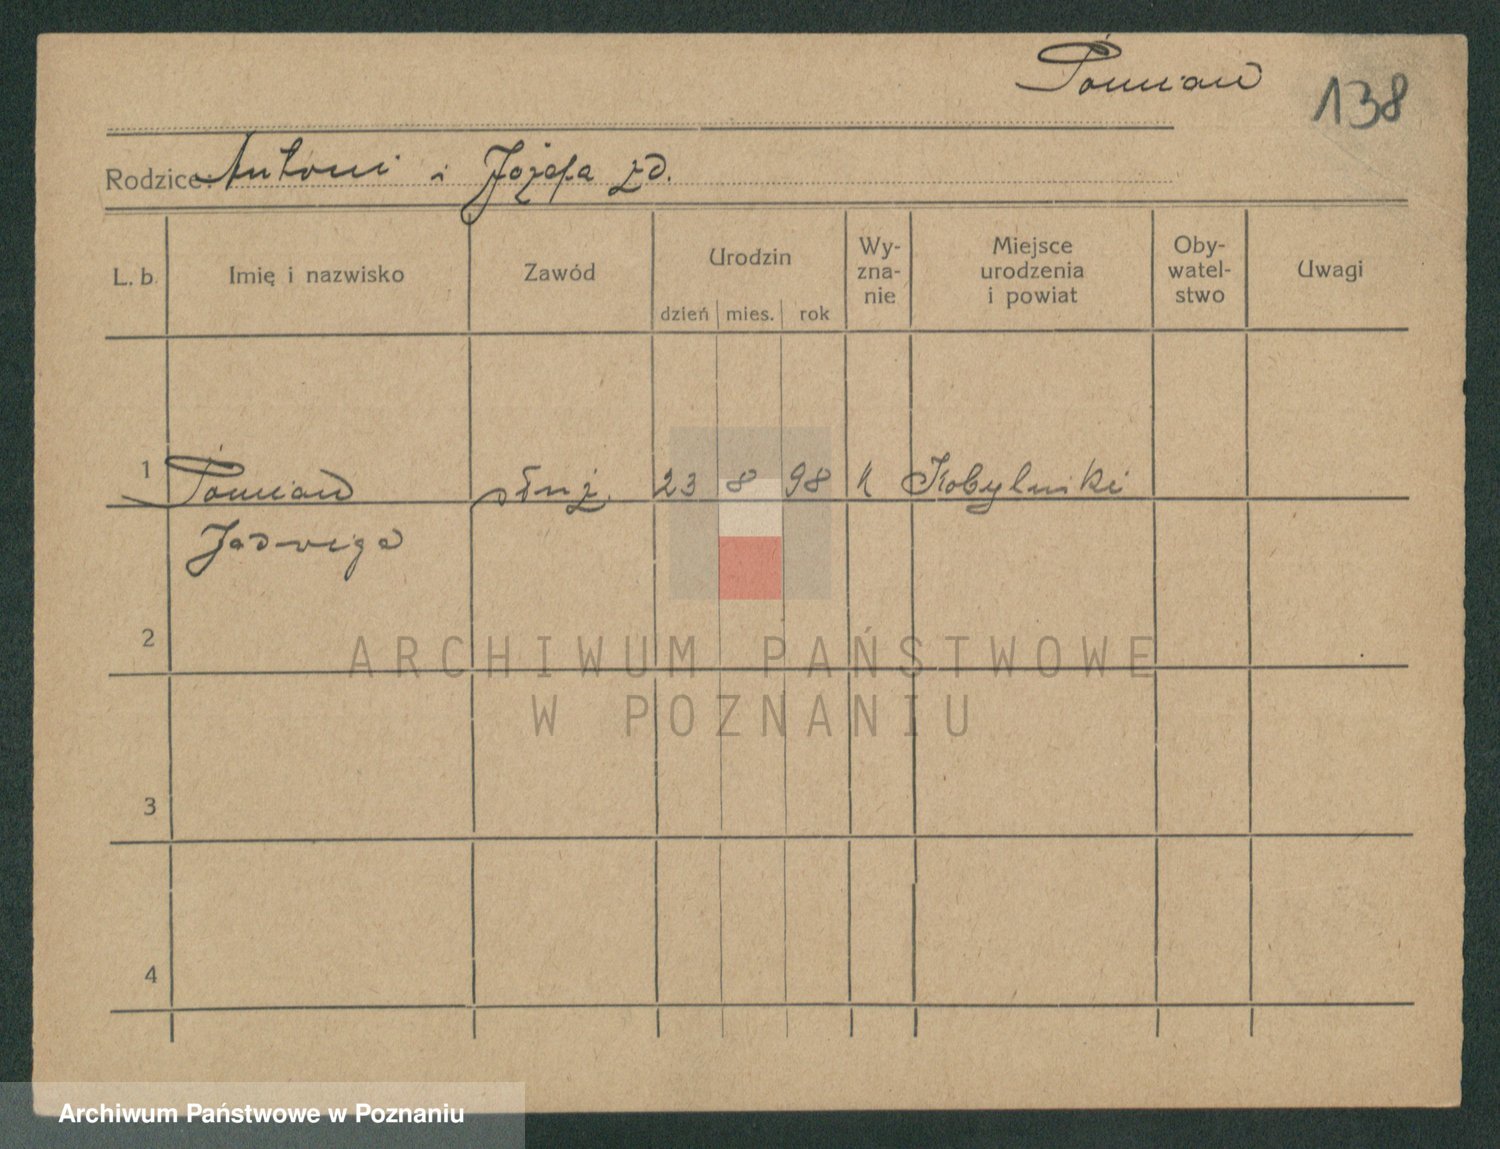 Pomian
138
Rodzice: Antoni i Józefa zd.
L. b. Imię i nazwisko Zawód Urodzin dzień mies. rok Wy-
zna-
nie Miejsce
urodzenia
i powiat Oby-
watel-
stwo Uwagi
1 Pomian służ. 23 8 98 K Kobylniki
Jadwiga
2
ARCHIWUM PAŃSTWOWE
W POZNANIU
3
4
Archiwum Państwowe w Poznaniu